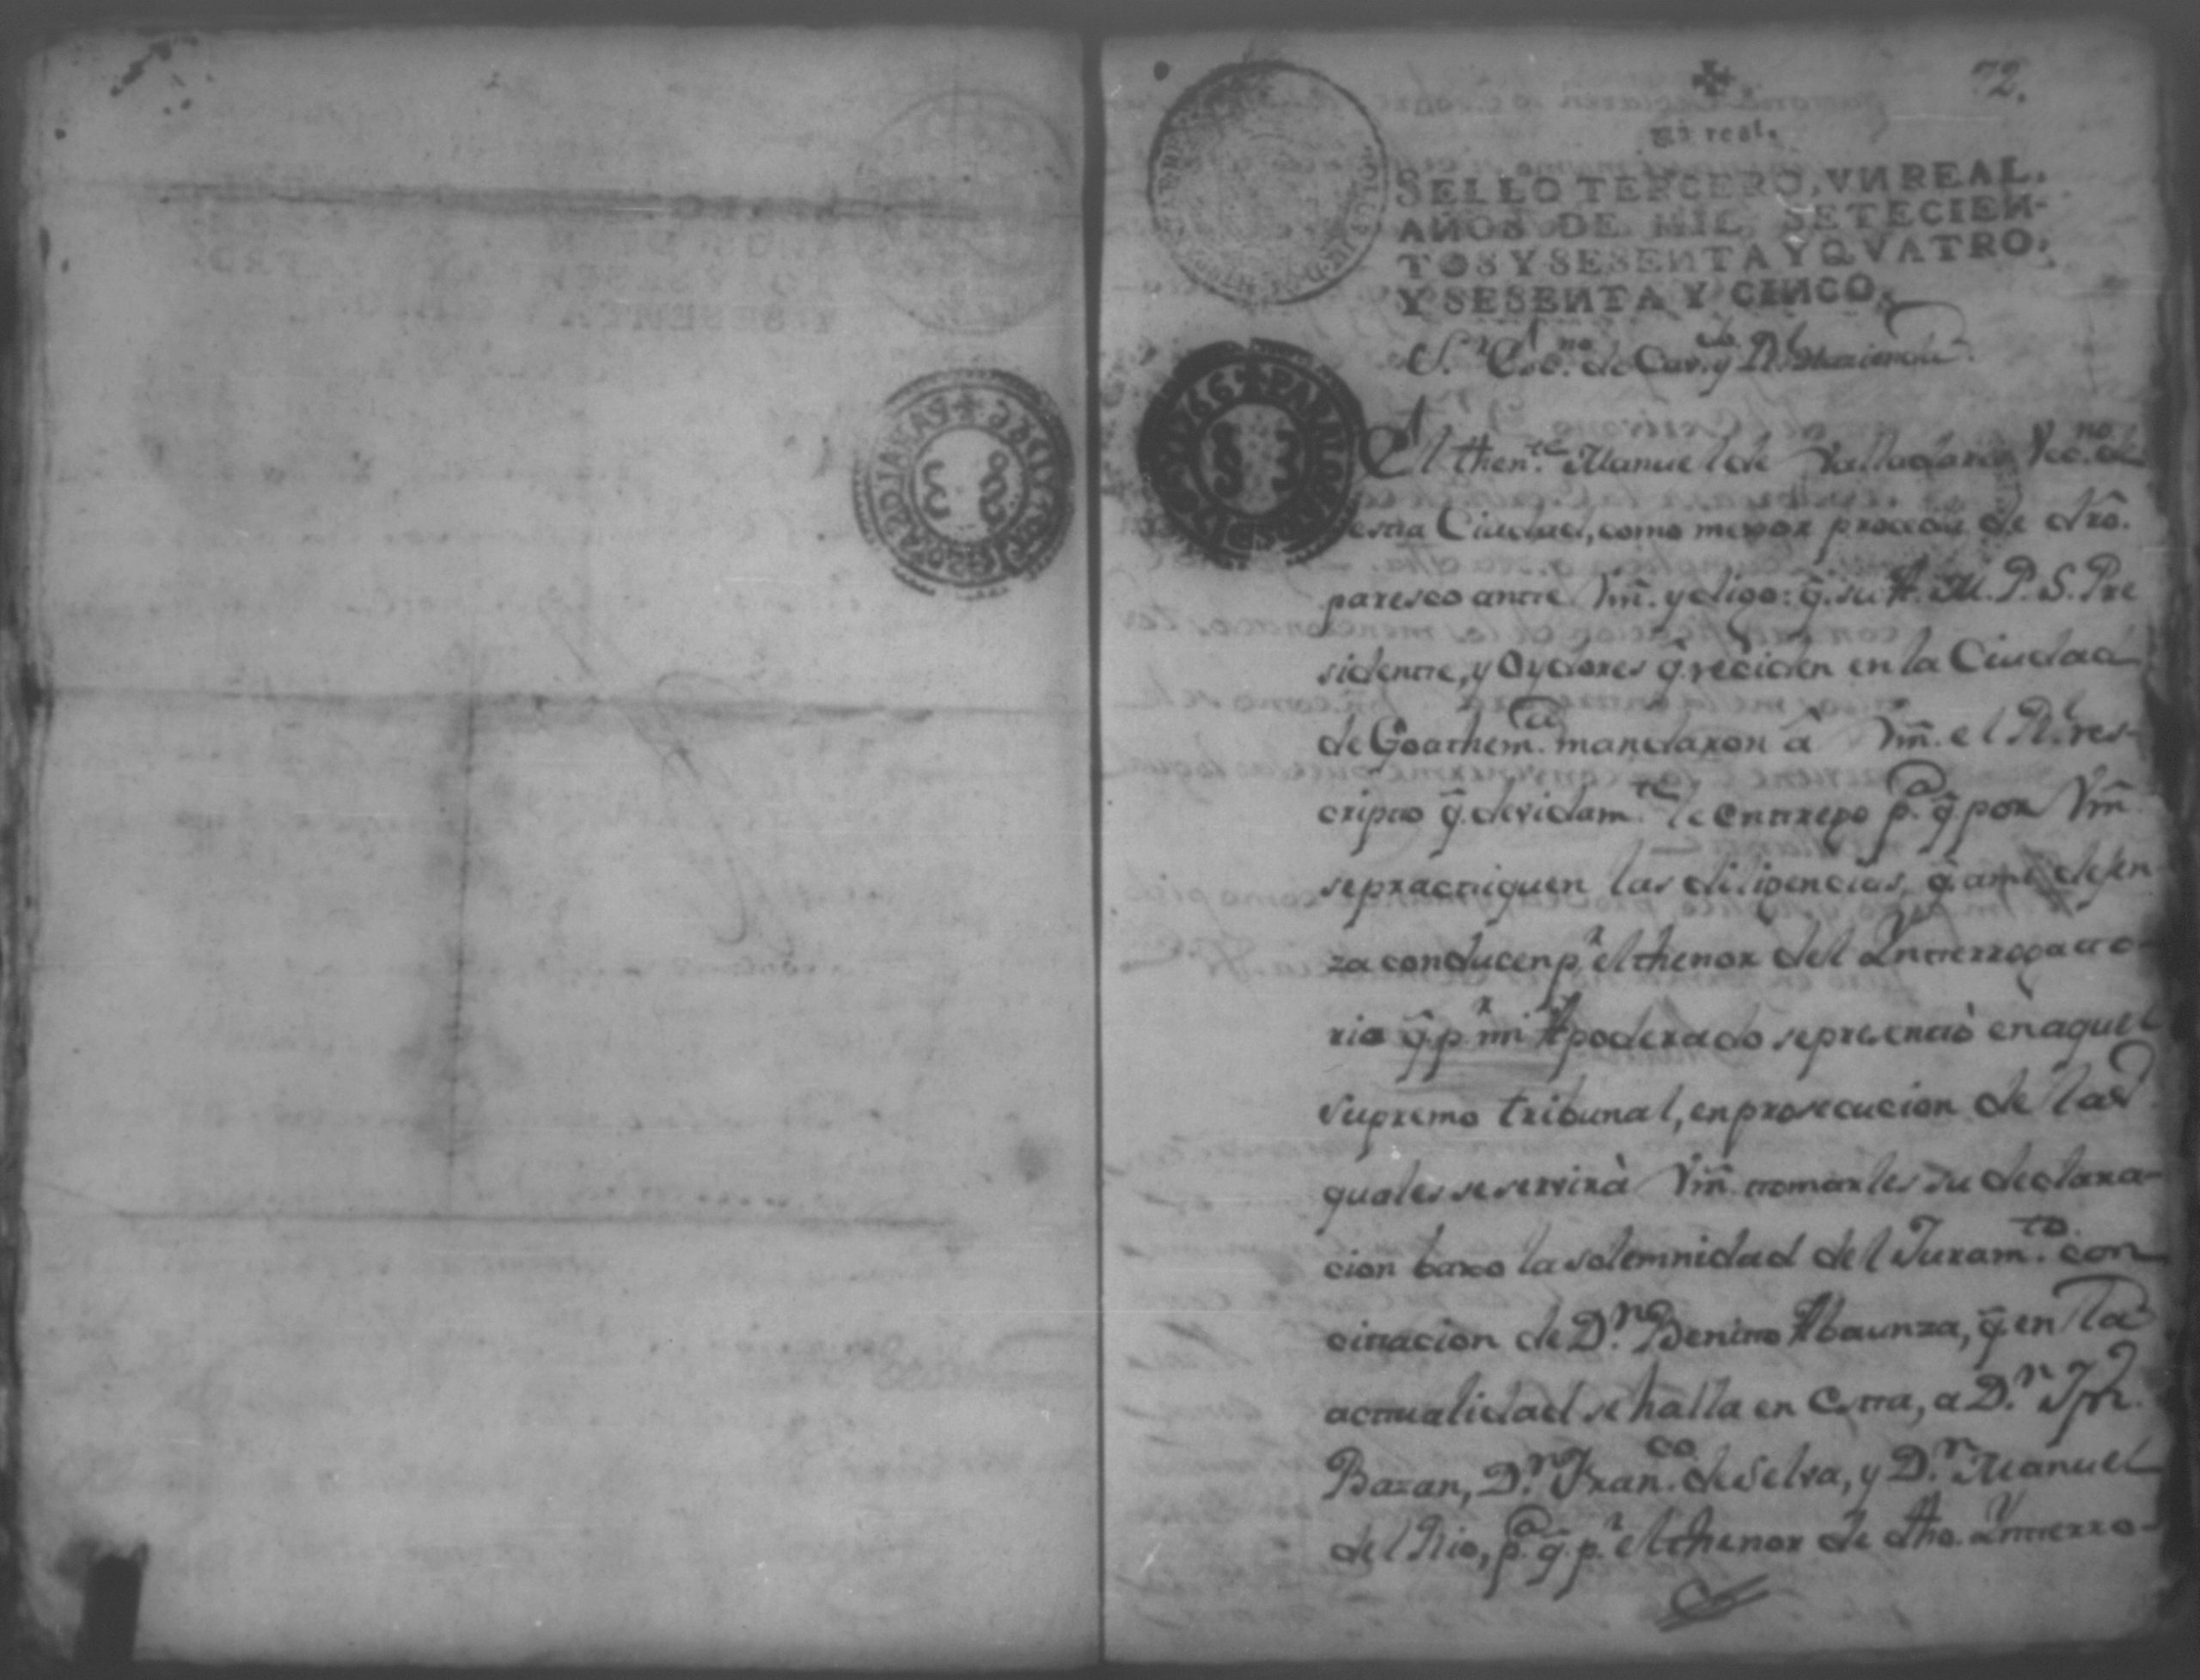 72.
un real.
SELLO TERCERO, VN REAL,
AÑOS DE MIL SETECIEN-
TOS Y SESENTA Y QVATRO,
Y SESENTA Y CINCO.
S.r Esc.no de Cav.do y R.l Hacienda
El then.te Manuel de Valladares Vec.no de
esta Ciudad, como mexor proceda de dro.
paresco ante Vm̃. y digo: q̃. su A. M. P. S. Pre
sidente, y Oydores q̃ reciden en la Ciudad
de Goathem.a mandaron â Vm̃. el R.l res-
cripto q̃. devidam.te le entrego p.a q̃ por Vm̃
se practiquen las diligencias q̃ a mi defen
za conducen p.r el thenor del Ynterrogato-
rio q̃. p.r mi Apoderado se presentò en aquel
supremo tribunal, en prosecucion de las
quales se servirà Vm̃. tomarles su declara-
cion baxo la solemnidad del Juram.to con
citacion de D.n Benito Abaunza, q̃. en la
actualidad se halla en esta, a D.n Jph.
Bazan, D.n Fran.co de Selva, y D.n Manuel
del Rio, p.a q̃. p.r el thenor de dho. Ynterro-